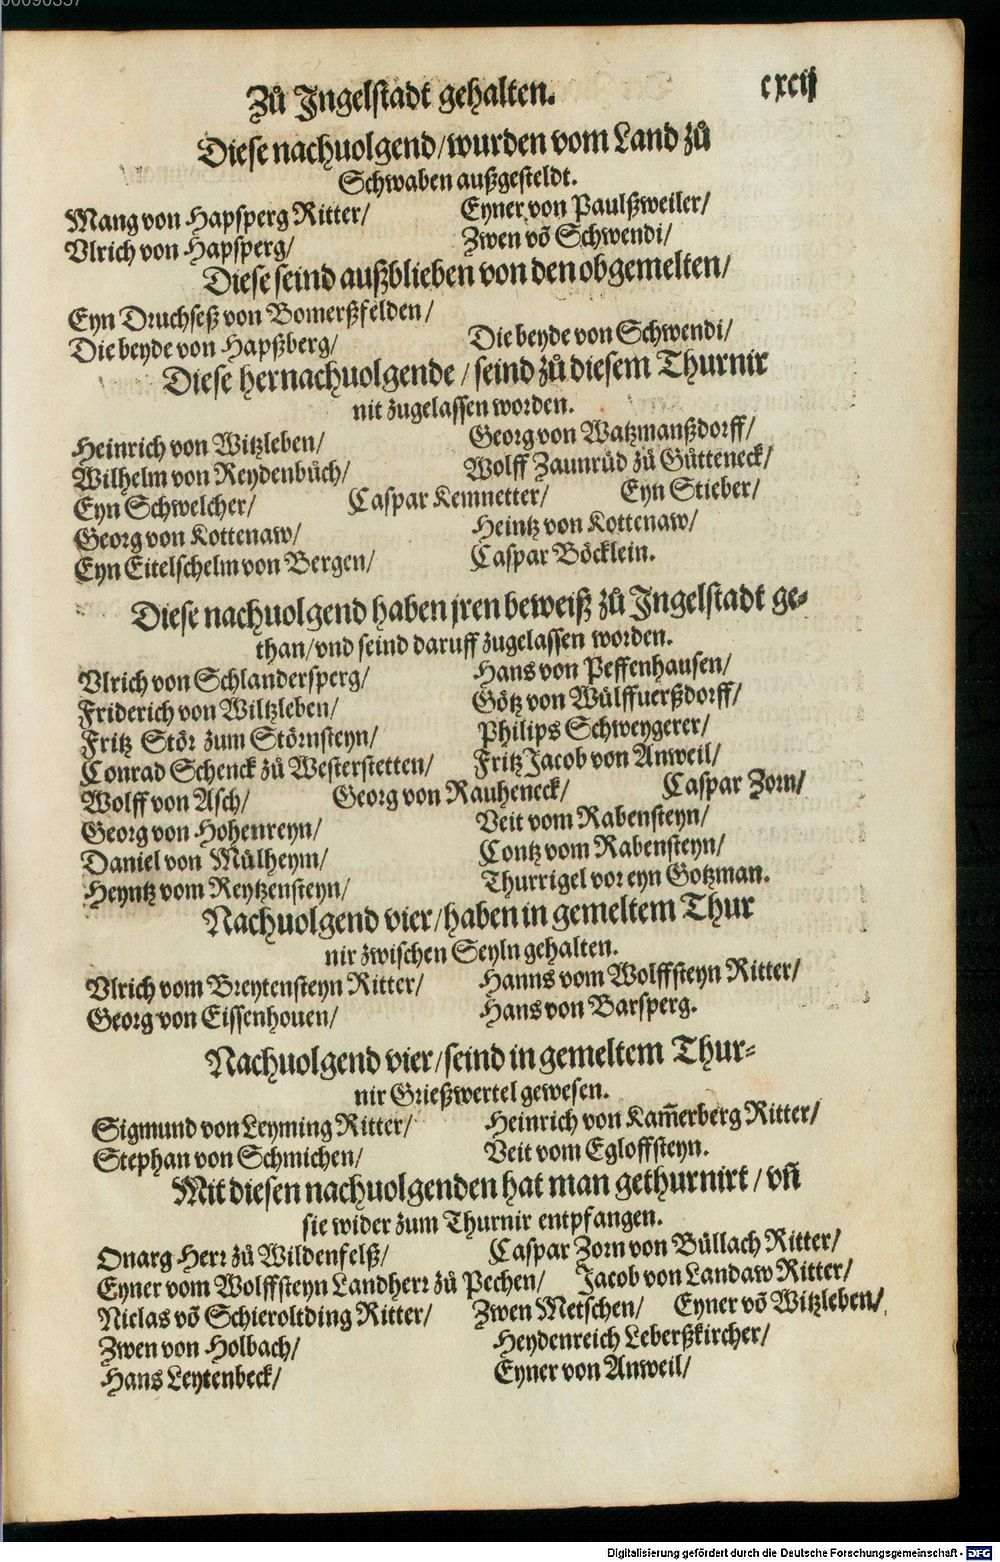 Zů Ingelstadt gehalten. cxcij
Diese nachuolgend/wurden vom Land zů
Schwaben außgesteldt.
Mang von Hapsperg Ritter/ Eyner von Paulßweiler/
Vlrich von Hapsperg/ Zwen võ Schwendi/
Diese seind außblieben von den obgemelten/
Eyn Druchseß von Bomerßfelden/
Die beyde von Hapßberg/ Die beyde von Schwendi/
Diese hernachuolgende/seind zů diesem Thurnir
nit zugelassen worden.
Heinrich von Witzleben/ Georg von Watzmanßdorff/
Wilhelm von Reydenbůch/ Wolff Zaunrüd zů Gůtteneck/
Eyn Schwelcher/ Caspar Kemnetter/ Eyn Stieber/
Georg von Kottenaw/ Heintz von Kottenaw/
Eyn Eitelschelm von Bergen/ Caspar Böcklein.
Diese nachuolgend haben jren beweiß zů Ingelstadt ge-
than/vnd seind daruff zugelassen worden.
Vlrich von Schlandersperg/ Hans von Peffenhausen/
Friderich von Wiltzleben/ Götz von Wülffuerßdorff/
Fritz Stör zum Störnsteyn/ Philips Schweygerer/
Conrad Schenck zů Westerstetten/ Fritz Jacob von Anweil/
Wolff von Asch/ Georg von Rauheneck/ Caspar Zorn/
Georg von Hohenreyn/ Veit vom Rabensteyn/
Daniel von Můlheym/ Contz vom Rabensteyn/
Heyntz vom Reytzensteyn/ Thurrigel vor eyn Gotzman.
Nachuolgend vier/haben in gemeltem Thur
nir zwischen Seyln gehalten.
Vlrich vom Breytensteyn Ritter/ Hanns vom Wolffsteyn Ritter/
Georg von Eissenhouen/ Hans von Barsperg.
Nachuolgend vier/seind in gemeltem Thur-
nir Grießwertel gewesen.
Sigmund von Leyming Ritter/ Heinrich von Kam̃erberg Ritter/
Stephan von Schmichen/ Veit vom Egloffsteyn.
Mit diesen nachuolgenden hat man gethurnirt/vñ
sie wider zum Thurnir entpfangen.
Onarg Herr zů Wildenfelß/ Caspar Zorn von Büllach Ritter/
Eyner vom Wolffsteyn Landherr zů Pechen/ Jacob von Landaw Ritter/
Niclas võ Schieroltding Ritter/ Zwen Metschen/ Eyner võ Witzleben/
Zwen von Holbach/ Heydenreich Leberßkircher/
Hans Leytenbeck/ Eyner von Anweil/
Digitalisierung gefördert durch die Deutsche Forschungsgemeinschaft - DFG